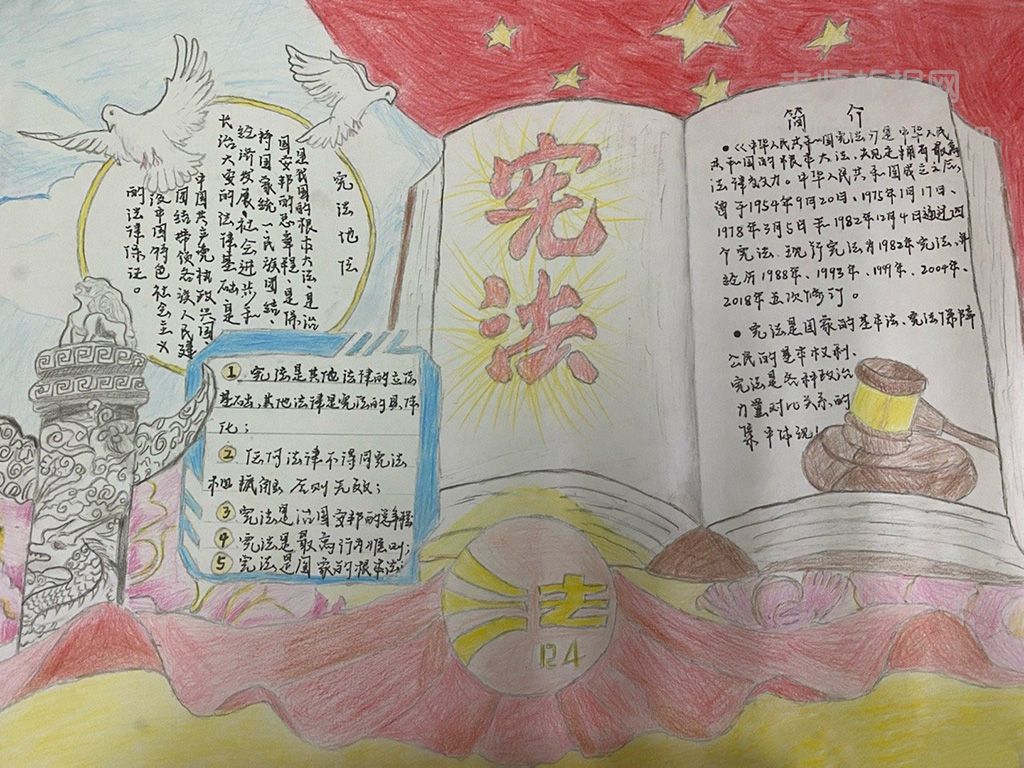 宪法地位
是我国的根本大法,是治
国安邦的总章程,是保
持国家统一、民族团结、
经济发展、社会进步和
长治久安的法律基础,是
中国共产党执政兴国、
团结带领各族人民建
设中国特色社会主义
的法律保证。
① 宪法是其他法律的立法
基础,其他法律是宪法的具体
化;
② 任何法律不得同宪法
相抵触 否则无效;
③ 宪法是治国安邦的总章程
④ 宪法是最高行为准则;
⑤ 宪法是国家的根本法
宪法
简 介
•《中华人民共和国宪法》是中华人民
共和国的根本大法,
法律效力。中华人民共和国成立之后,
曾于1954年9月20日、1975年1月17日、
1978年3月5日和1982年12月4日通过四
个宪法,现行宪法为1982年宪法,并
经历1988年、1993年、1999年、2004年、
2018年五次修订。
• 宪法是国家的基本法、宪法保障
公民的基本权利、
宪法是各种政治
力量对比关系的
集中体现!
法
12.4
老师教报网